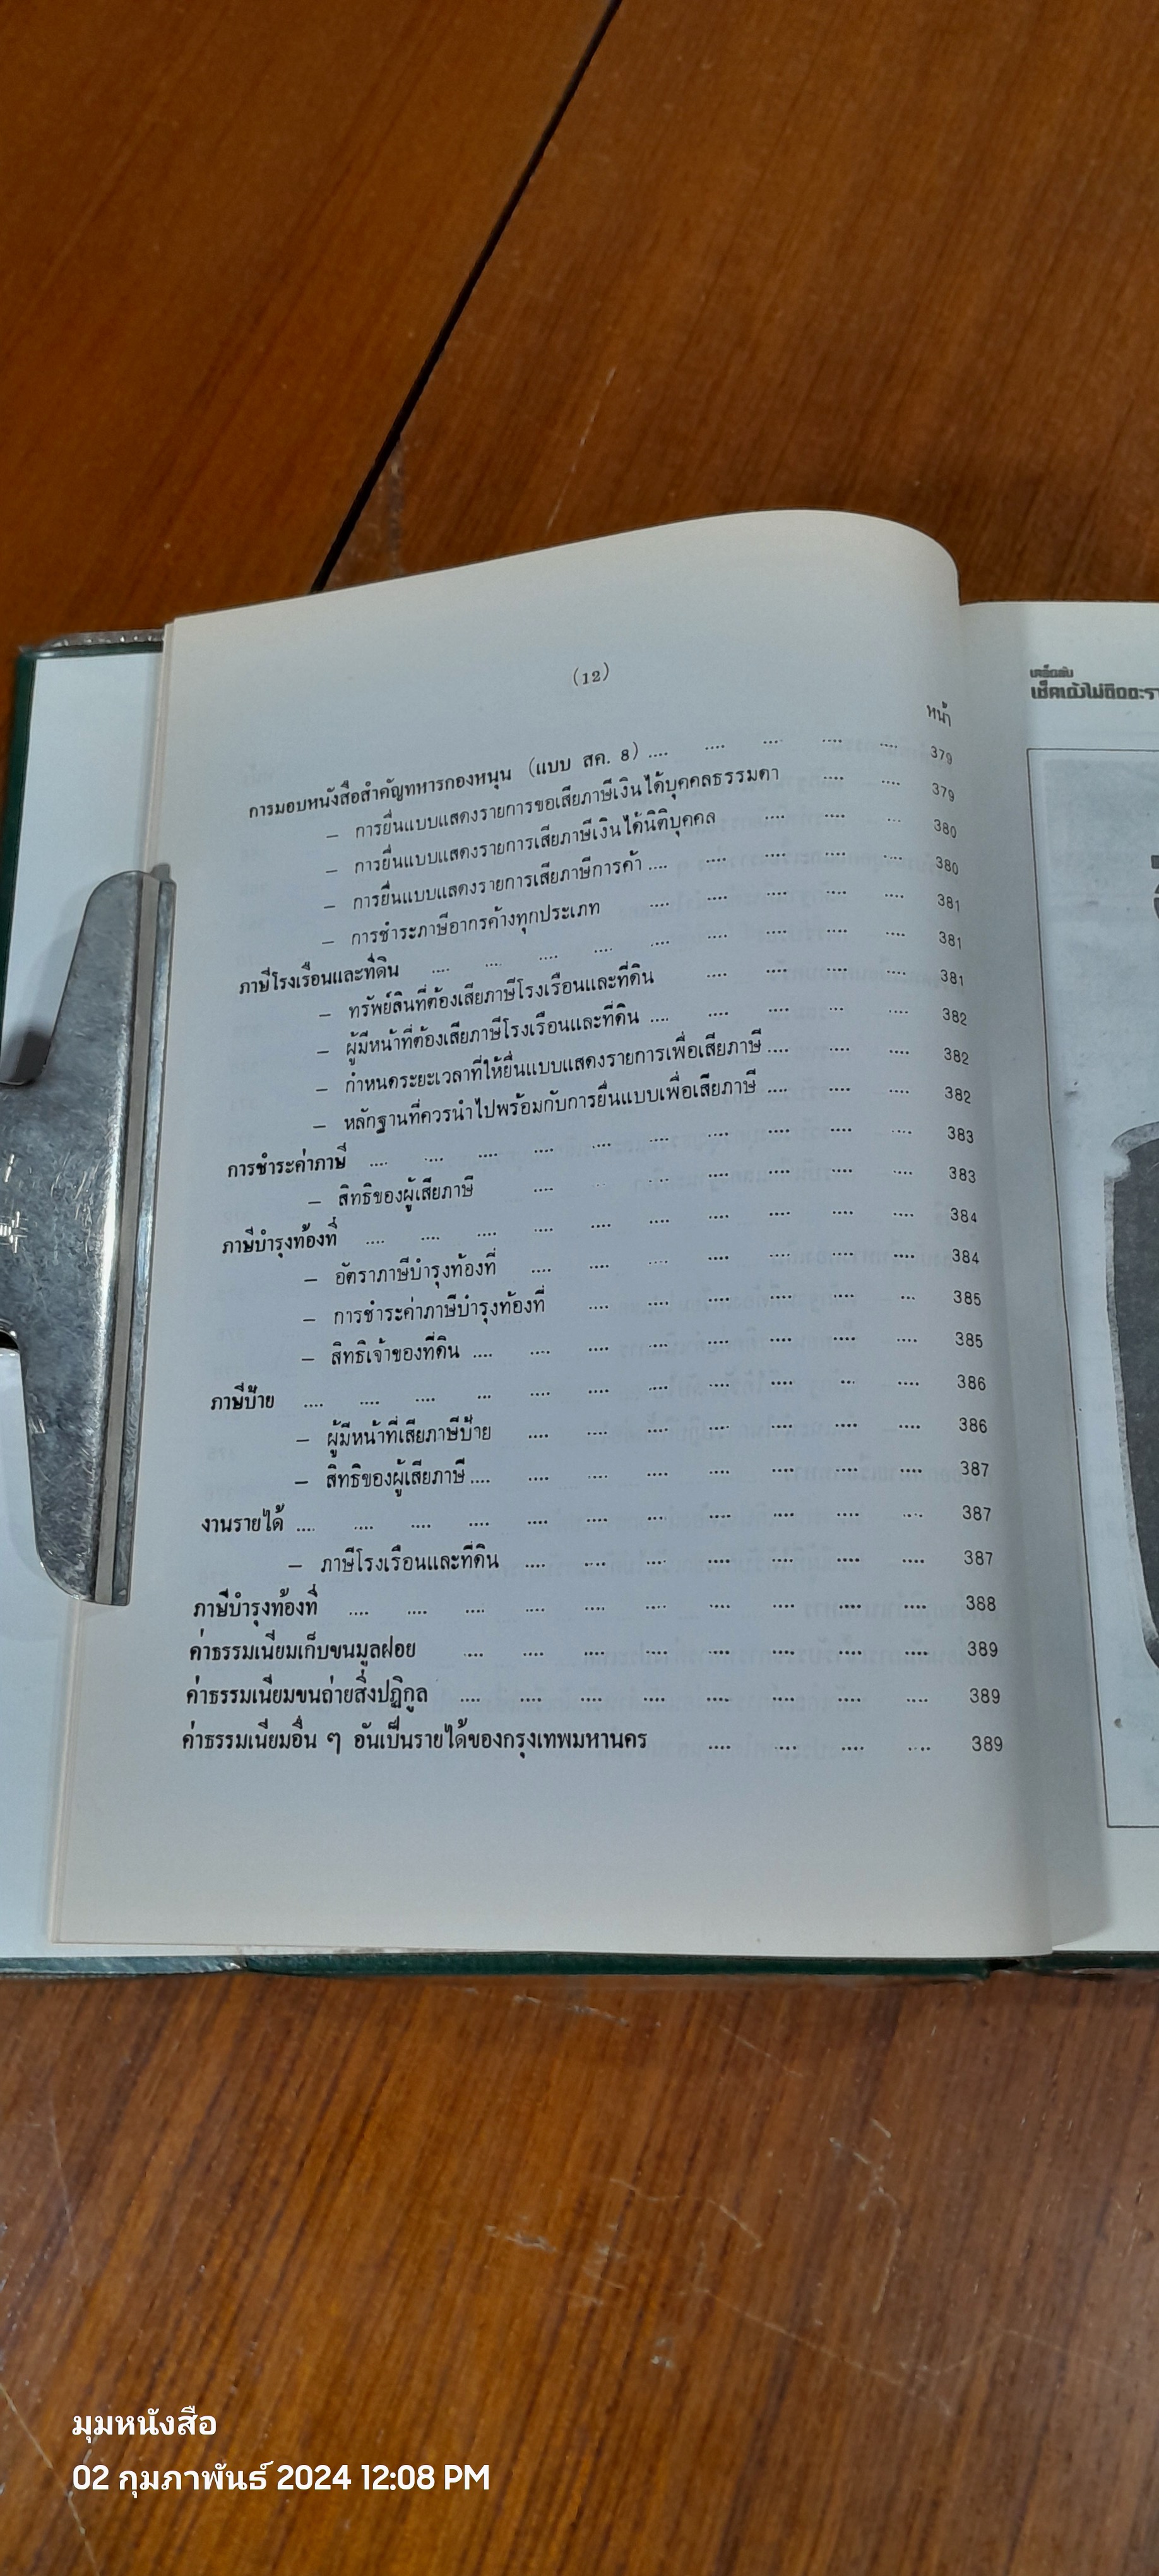 (12)
หน้า
การมอบหนังสือสำคัญทหารกองหนุน (แบบ สค. 8) .... .... .... .... .... 379
– การยื่นแบบแสดงรายการขอเสียภาษีเงินได้บุคคลธรรมดา .... .... 379
– การยื่นแบบแสดงรายการเสียภาษีเงินได้นิติบุคคล .... .... .... 380
– การยื่นแบบแสดงรายการเสียภาษีการค้า .... .... .... .... .... 380
– การชำระภาษีอากรค้างทุกประเภท .... .... .... .... .... 381
ภาษีโรงเรือนและที่ดิน .... .... .... .... .... .... .... .... .... 381
– ทรัพย์สินที่ต้องเสียภาษีโรงเรือนและที่ดิน .... .... .... .... 381
– ผู้มีหน้าที่ต้องเสียภาษีโรงเรือนและที่ดิน .... .... .... .... .... 382
– กำหนดระยะเวลาที่ให้ยื่นแบบแสดงรายการเพื่อเสียภาษี .... .... .... 382
– หลักฐานที่ควรนำไปพร้อมกับการยื่นแบบเพื่อเสียภาษี .... .... .... 382
การชำระค่าภาษี .... .... .... .... .... .... .... .... .... .... 383
– สิทธิของผู้เสียภาษี .... .... .... .... .... .... .... 383
ภาษีบำรุงท้องที่ .... .... .... .... .... .... .... .... .... .... 384
– อัตราภาษีบำรุงท้องที่ .... .... .... .... .... .... .... 384
– การชำระค่าภาษีบำรุงท้องที่ .... .... .... .... .... .... 385
– สิทธิเจ้าของที่ดิน .... .... .... .... .... .... .... .... 385
ภาษีป้าย .... .... .... .... .... .... .... .... .... .... .... 386
– ผู้มีหน้าที่เสียภาษีป้าย .... .... .... .... .... .... .... 386
– สิทธิของผู้เสียภาษี .... .... .... .... .... .... .... .... 387
งานรายได้ .... .... .... .... .... .... .... .... .... .... .... 387
– ภาษีโรงเรือนและที่ดิน .... .... .... .... .... .... .... 387
ภาษีบำรุงท้องที่ .... .... .... .... .... .... .... .... .... .... 388
ค่าธรรมเนียมเก็บขนมูลฝอย .... .... .... .... .... .... .... .... 389
ค่าธรรมเนียมขนถ่ายสิ่งปฏิกูล .... .... .... .... .... .... .... .... 389
ค่าธรรมเนียมอื่น ๆ อันเป็นรายได้ของกรุงเทพมหานคร .... .... .... .... 389
เคล็ดลับ
มุมหนังสือ
02 กุมภาพันธ์ 2024 12:08 PM